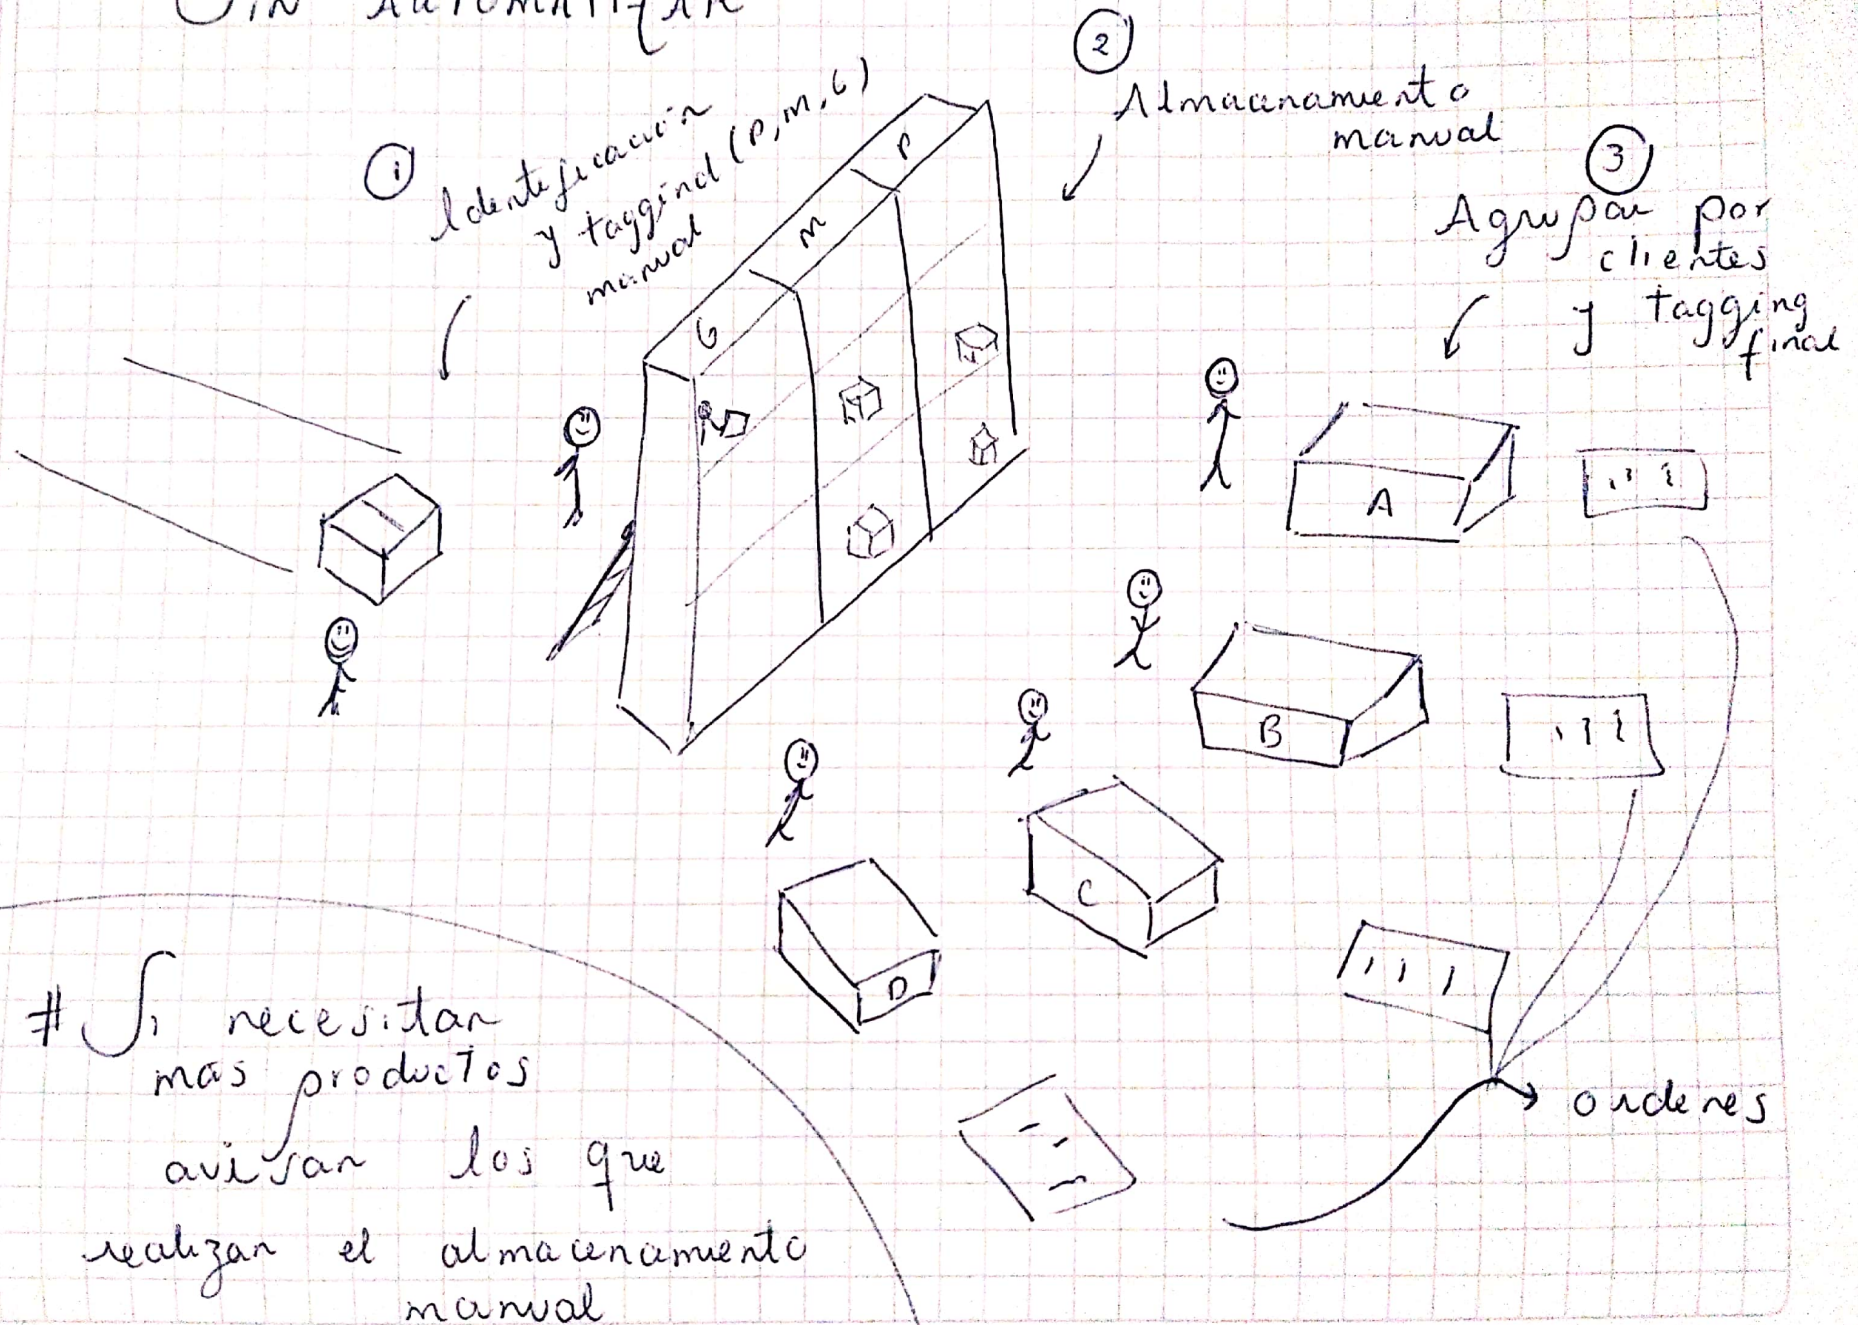 SIN AUTOMATIZAR
1
Identificación
y taggind (P, M, G)
manual
2
Almacenamiento
manual
3
Agrupar por
clientes
y tagging
final
P
M
G
A
B
C
D
ordenes
# Si necesitan
más productos
avisan los que
realizan el almacenamiento
manual